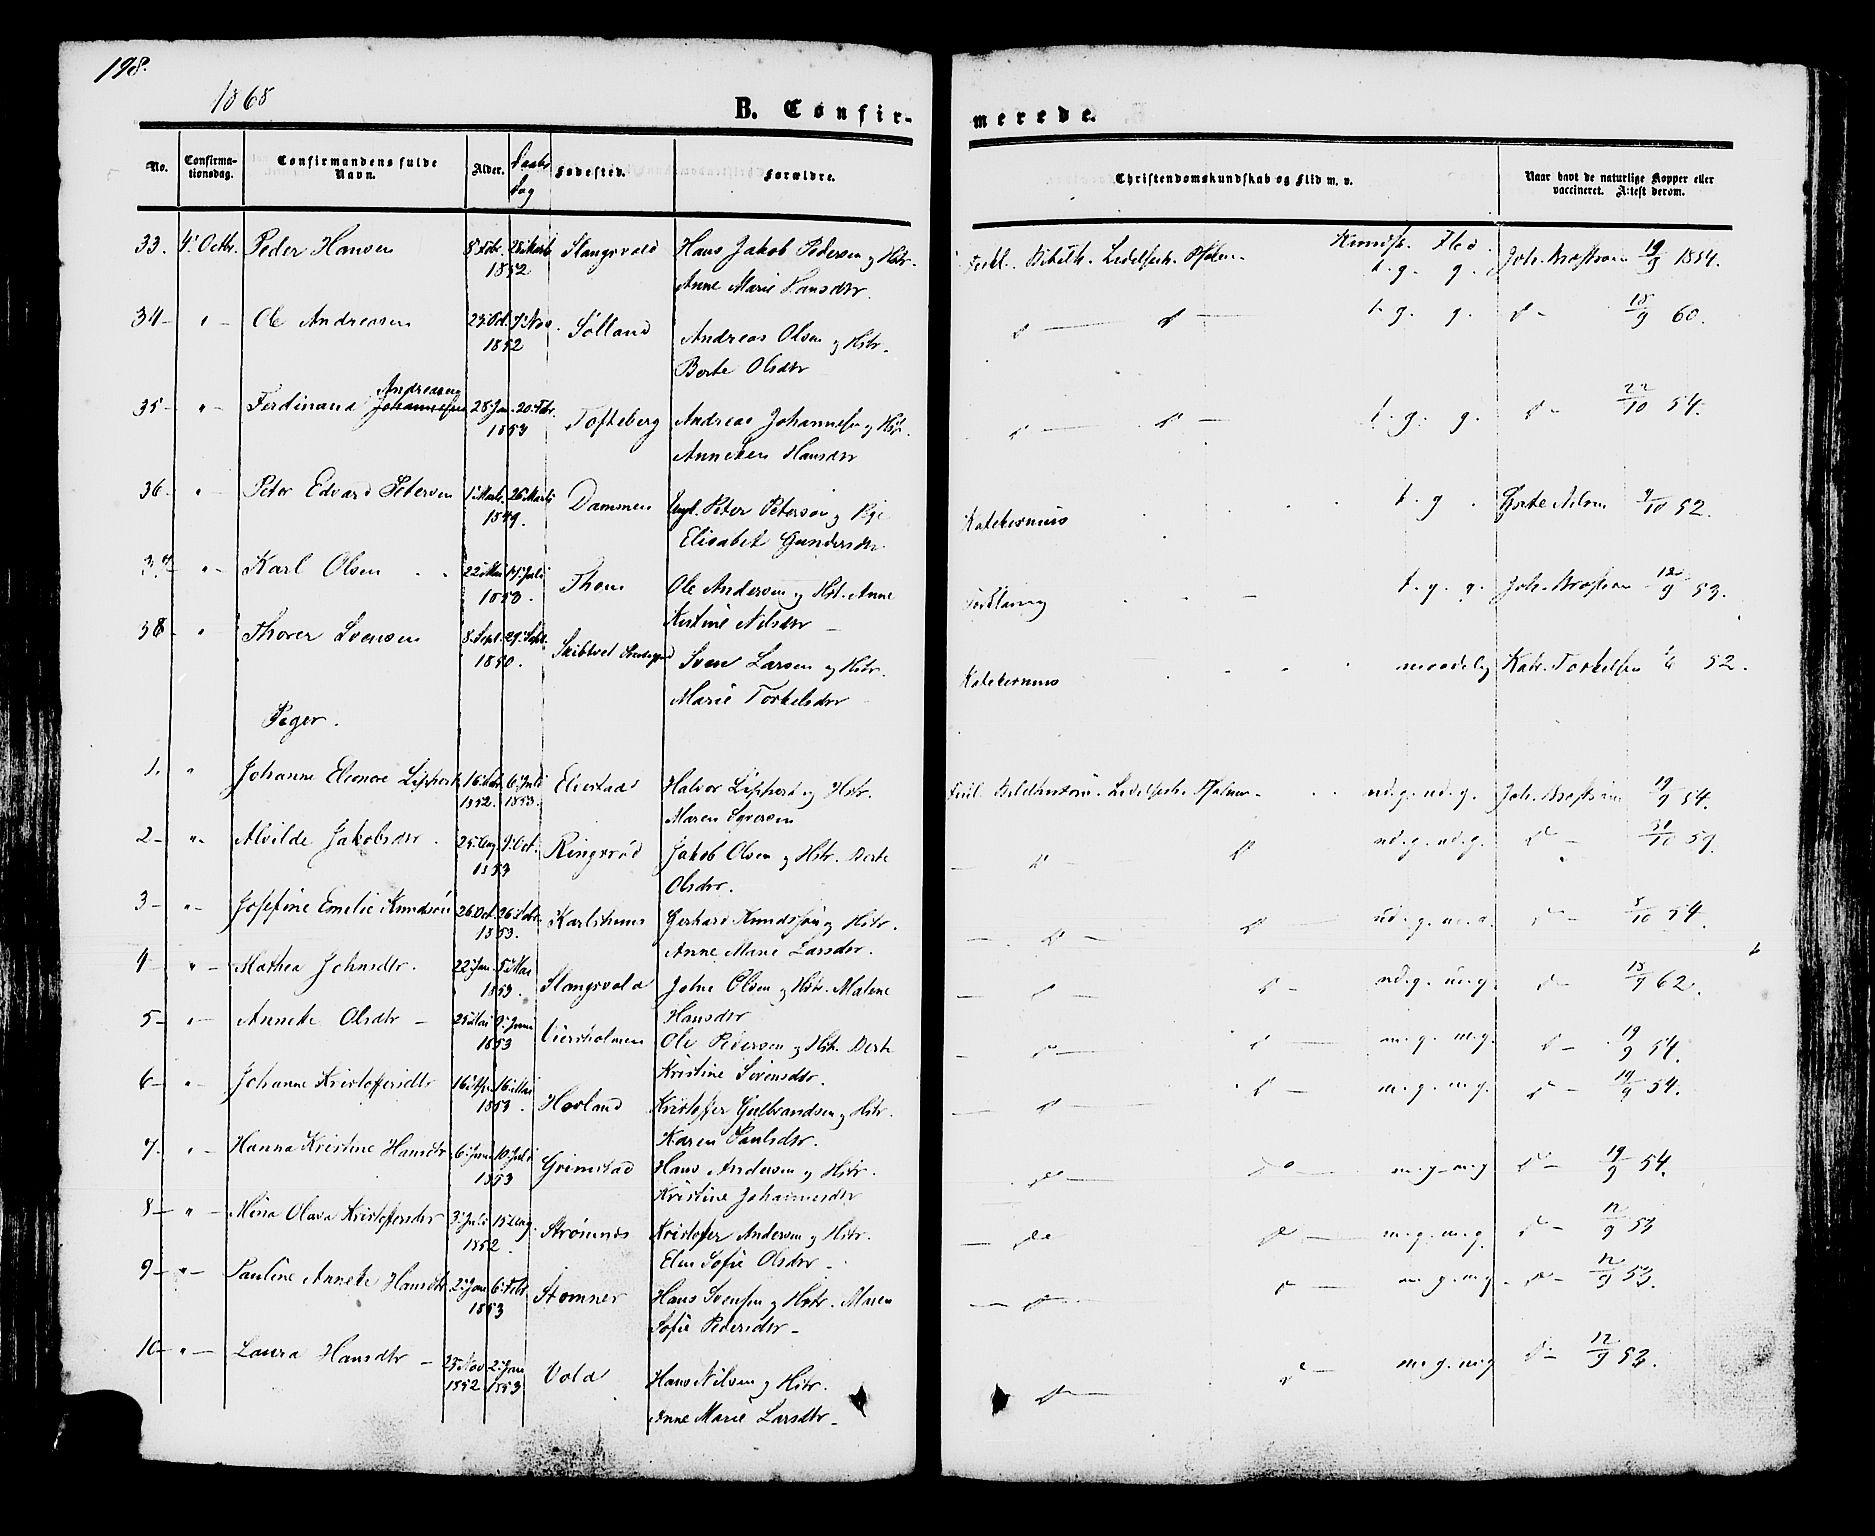 198.
1868
B. Confir-
merede.
No.
Confirma-
tionsdag.
Confirmandens fulde
Navn.
Alder.
Daabs
dag
Fødested.
Forældre.
Christendomskundskab og Flid m. v.
Naar havt de naturlige Kopper eller
vaccineret. Attest derom.
33. 4. Octbr. Peder Hansen 8. Febr. 28. Marts Slangsvold Hans Jakob Pedersen og Hstr. Kundsk. Flid.
1852 Anne Marie Hansdtr. t. g. g. 19/9 1854.
34 — " — Ole Andreasen 7. Nov. Sølland Andreas Olsen og Hstr. t. g. g. d — 18/9 60.
1852 Berte Olsdtr
35 — " — Ferdinand Johannesen Andreasen 28. Jan. 20. Febr. Tofteberg Andreas Johannesen og Hstr. t. g. g. d — 22/10 54.
1853 Anneken Hansdtr
36 — " — Peter Edvard Petersen 1. Marts 26. Marts Dammen Ungk. Peter Petersen og Pige Katekismus t. g. 9/10 52.
1849. Elisabet Gundersdtr.
37 — " — Karl Olsen 22. Mai 17. Juli Thom Ole Andersen og Hst. Anne t. g. g. 12/9 53.
1853. Kirstine Nilsdtr —
38 — " Thorer Svensen 8. Sept. 29. Sept. Skibtvet Sven Larsen og Hstr. Katekismus maadelig Katr. Torkelsen 52.
1850. Marie Torkelsdtr
Piger.
1. " Johanne Eleonore 6. Juli Eliestad Halvor og Hstr. md. g. md. g. 19/9 54.
1852. 1853. Maren Syversen
2 — " — Alvilde Jakobsdtr. 25. Aug. 9. Oct. Ringsrød Jakob Olsen og Hstr. Dorte d d md. g. md. g. d — 31/10 59.
1853 Olsdtr.
3 — " — Josefine Emelie Knudsen 26. Oct. Karlshuus Gerhard Knudsen og Hstr. d d d — 5/10 54.
1853. Anne Marie Larsdtr.
4 — " — Mathea Johnsdtr. 22. Jan. 5. Mai Slangsvold John Olsen og Hstr. Malene d d d — 18/9 62.
1853. Hansdtr
5 — " — Annette Olsdtr — 25. Mai 9. Juni Ole Pedersen og Hstr. Dorte d d m. g. m. g. d — 19/9 54.
1853 Kristine Svensdtr.
6 — " — Johanne Kristoffersdtr 16. Apr. 16. Mai Hovland Kristoffer Gulbrandsen og Hstr. d d m. g. m. g. d — 19/9 54.
1853. Karen Paulsdtr.
7. " — Hanna Kristine Hansdtr 6. Juni 10. Juli Grimstad Hans Andersen og Hstr. do do m. g. m. g. d — 19/9 54.
1853 Kristine Johannesdtr
8 — " — Mina Olava Kristoffersdtr 3. Juli 15. Aug. Strømnes Kristofer Andersen og Hstr. do do m. g. m. g. d — 12/9 53
1852. Elen Sofie Olsdtr —
9 — " — Pauline Annette Hansdtr 2. Jan. 6. Febr. Stomner Hans Svensen og Hstr. Maren d d m. g. m. g. d — 12/9 53.
1853 Sofie Pedersdtr —
10 — " — Laura Hansdtr — 25. Nov 2. Jan Vold Hans Nilsen og Hstr. d d m. g. m. g. d — 12/9 53.
1852 1853 Anne Marie Larsdtr —